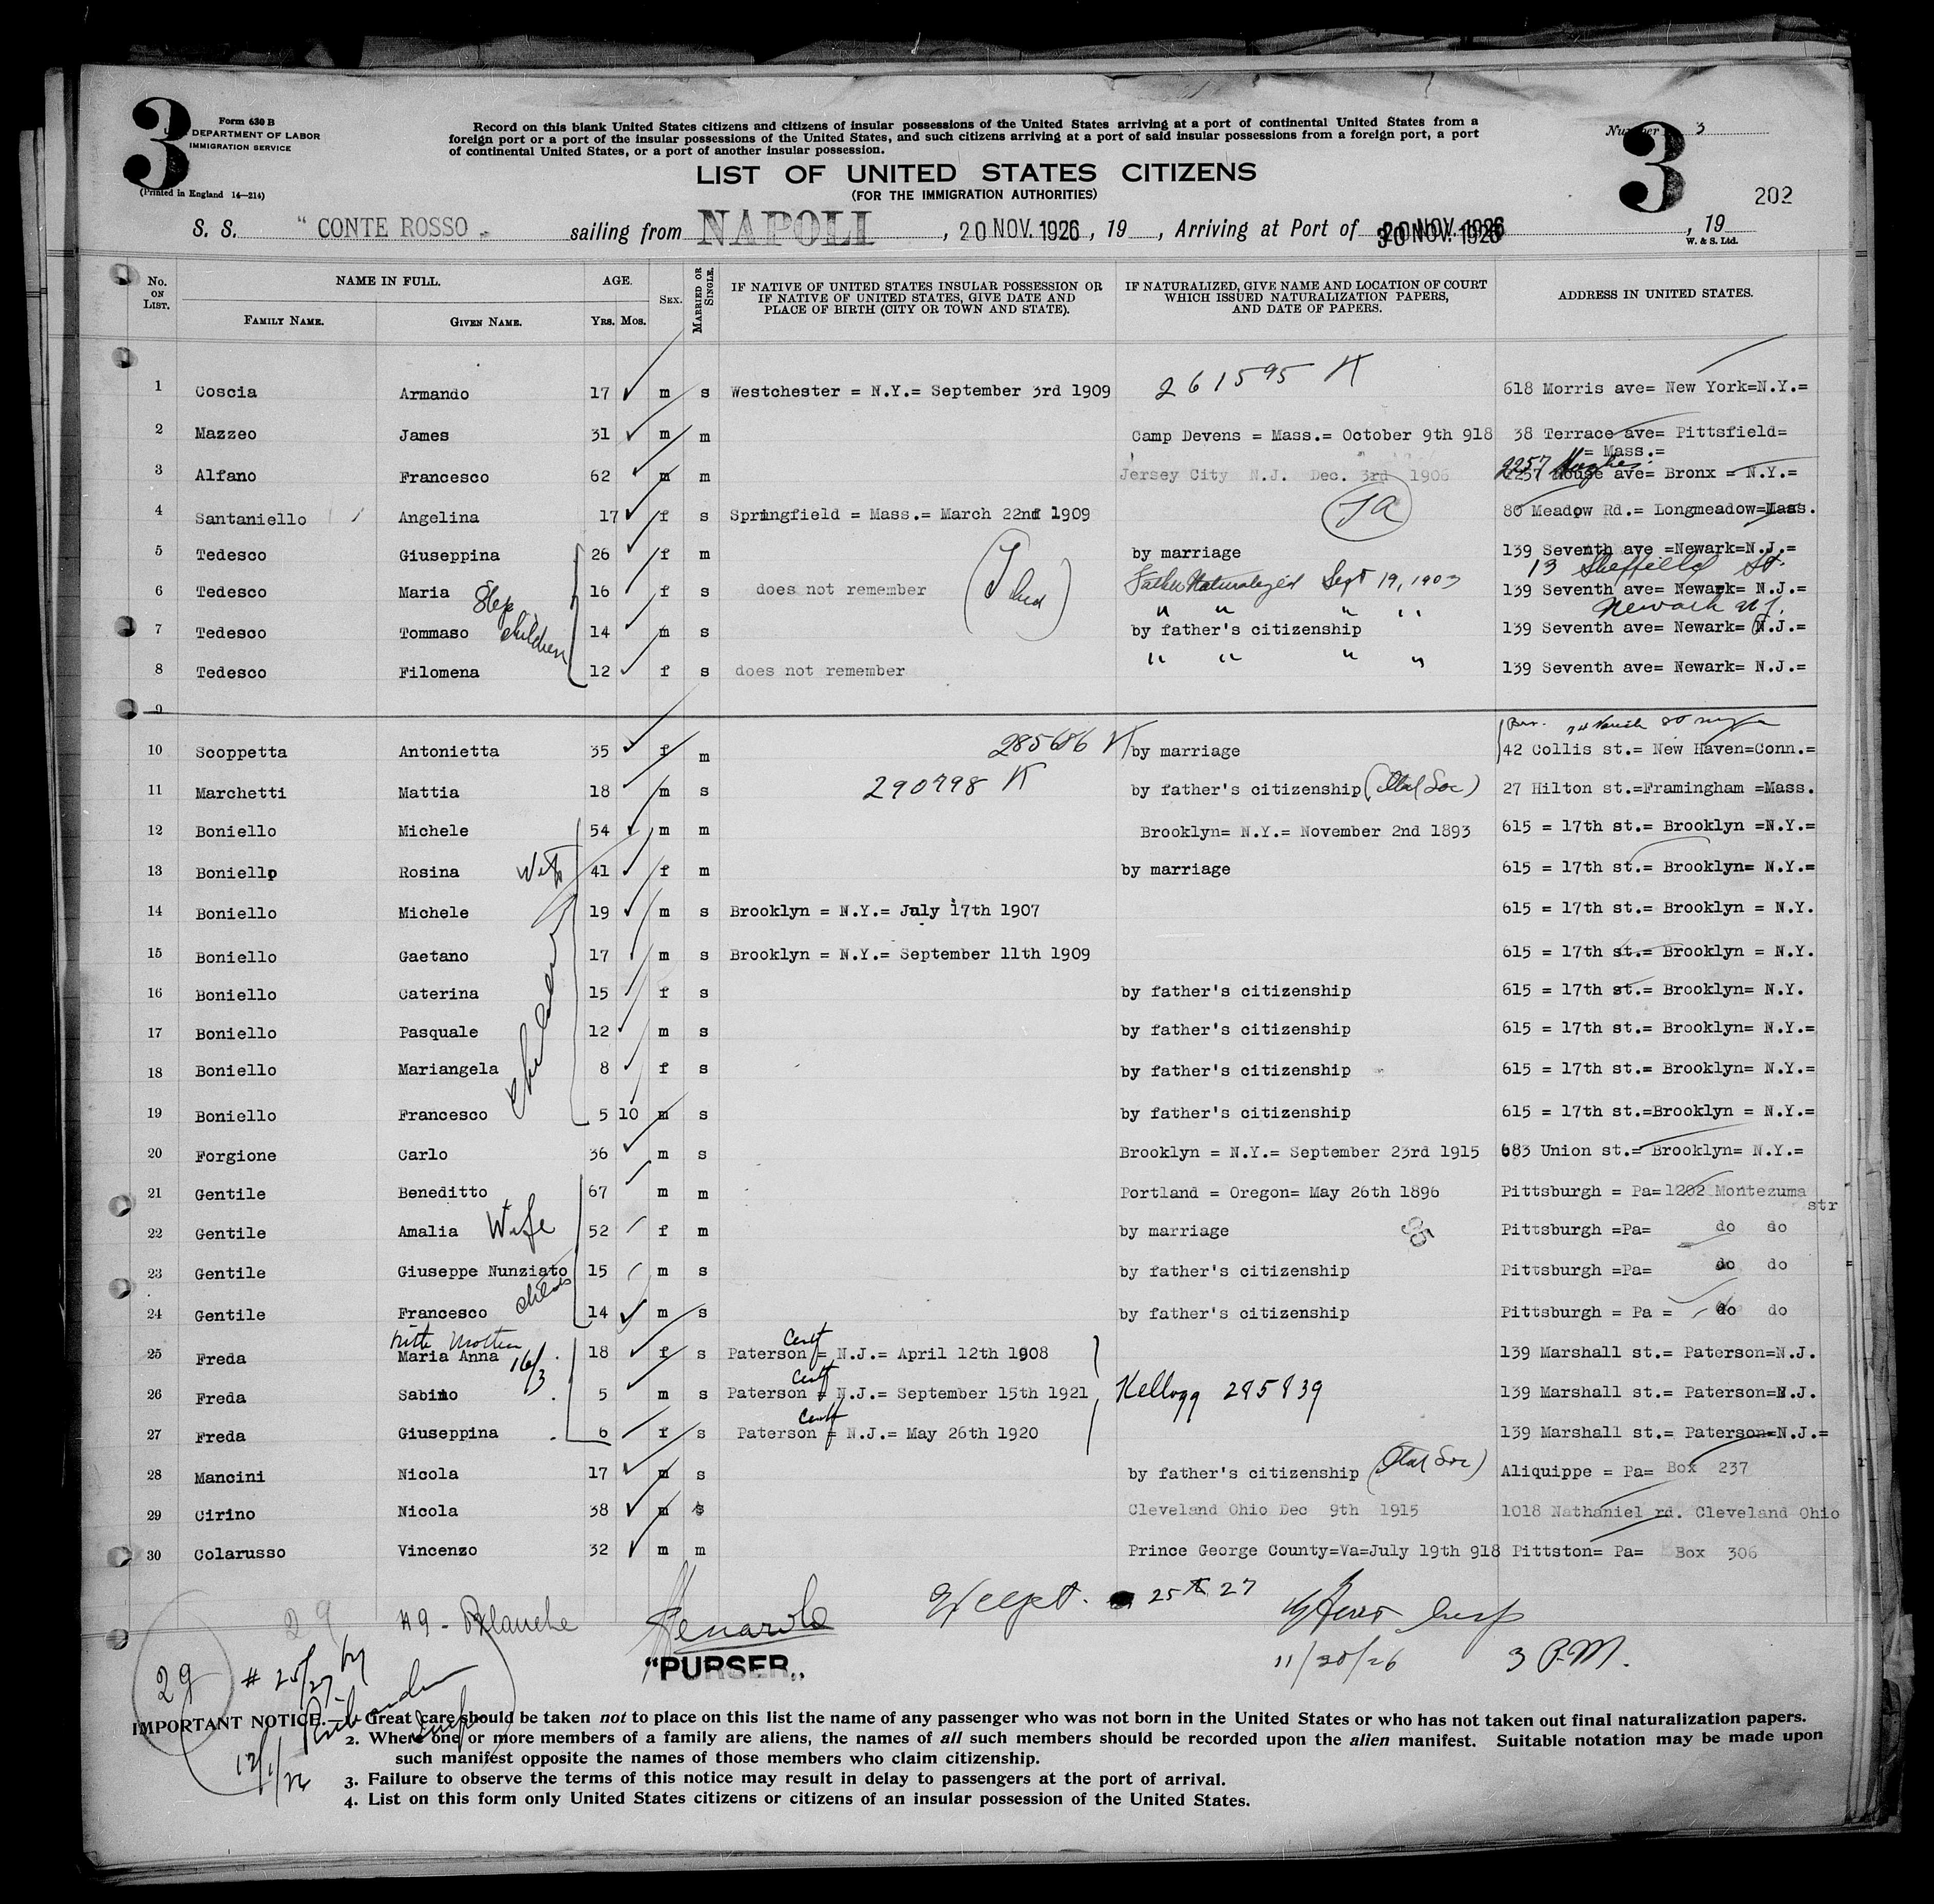 3
Form 630 B
U.S. DEPARTMENT OF LABOR
IMMIGRATION SERVICE
(Printed in England 14—214)
Record on this blank United States citizens and citizens of insular possessions of the United States arriving at a port of continental United States from a
foreign port or a port of the insular possessions of the United States, and such citizens arriving at a port of said insular possessions from a foreign port, a port
of continental United States, or a port of another insular possession.
Number 3
3
202
LIST OF UNITED STATES CITIZENS
(FOR THE IMMIGRATION AUTHORITIES)
S. S. "CONTE ROSSO sailing from NAPOLI, 20 NOV. 1926, 19 , Arriving at Port of 30 NOV. 1926, 19
W. & S. Ltd.
No. ON LIST. NAME IN FULL. FAMILY NAME. GIVEN NAME. AGE. YRS. MOS. SEX. MARRIED OR SINGLE. IF NATIVE OF UNITED STATES INSULAR POSSESSION OR IF NATIVE OF UNITED STATES, GIVE DATE AND PLACE OF BIRTH (CITY OR TOWN AND STATE). IF NATURALIZED, GIVE NAME AND LOCATION OF COURT WHICH ISSUED NATURALIZATION PAPERS, AND DATE OF PAPERS. ADDRESS IN UNITED STATES.
1 Coscia Armando 17 m s Westchester = N.Y.= September 3rd 1909 261595 K 618 Morris ave= New York=N.Y.=
2 Mazzeo James 31 m m Camp Devens = Mass.= October 9th 918 38 Terrace ave= Pittsfield=
= Mass.=
3 Alfano Francesco 62 m m Jersey City N.J. Dec. 3rd 1906 2257 Hughes 2257 House ave= Bronx = N.Y.=
4 Santaniello Angelina 17 f s Springfield = Mass.= March 22nd 1909 80 Meadow Rd.= Longmeadow=Mass.
5 Tedesco Giuseppina 26 f m by marriage 139 Seventh ave =Newark=N.J.=
13 Sheffield St.
6 Tedesco Maria Step 16 f s does not remember Father Naturalized Sept 19, 1903 139 Seventh ave= Newark= N.J.=
" " " " Newark N.J.
7 Tedesco Tommaso children 14 m s by father's citizenship 139 Seventh ave= Newark= N.J.=
" " " "
8 Tedesco Filomena 12 f s does not remember 139 Seventh ave= Newark= N.J.=
9
10 Scoppetta Antonietta 35 f m 285686 K by marriage 42 Collis st.= New Haven=Conn.=
11 Marchetti Mattia 18 m s 290798 K by father's citizenship 27 Hilton st.=Framingham =Mass.
12 Boniello Michele 54 m m Brooklyn= N.Y.= November 2nd 1893 615 = 17th st.= Brooklyn =N.Y.=
13 Boniello Rosina Wife 41 f m by marriage 615 = 17th st.= Brooklyn= N.Y.=
14 Boniello Michele 19 m s Brooklyn = N.Y.= July 17th 1907 615 = 17th st.= Brooklyn = N.Y.
15 Boniello Gaetano 17 m s Brooklyn = N.Y.= September 11th 1909 615 = 17th st.= Brooklyn = N.Y.
16 Boniello Caterina children 15 f s by father's citizenship 615 = 17th st.= Brooklyn= N.Y.
17 Boniello Pasquale 12 m s by father's citizenship 615 = 17th st.= Brooklyn= N.Y.=
18 Boniello Mariangela 8 f s by father's citizenship 615 = 17th st.= Brooklyn= N.Y.=
19 Boniello Francesco 5 10 m s by father's citizenship 615 = 17th st.=Brooklyn = N.Y.=
20 Forgione Carlo 36 m s Brooklyn = N.Y.= September 23rd 1915 683 Union st.= Brooklyn= N.Y.=
21 Gentile Beneditto 67 m m Portland = Oregon= May 26th 1896 Pittsburgh = Pa=1202 Montezuma
str
22 Gentile Amalia Wife 52 f m by marriage Pittsburgh =Pa= do do
23 Gentile Giuseppe Nunziato 15 m s by father's citizenship Pittsburgh =Pa= do do
24 Gentile Francesco 14 m s by father's citizenship Pittsburgh = Pa = do do
With Mother
25 Freda Maria Anna 16/3 18 f s Paterson = N.J.= April 12th 1908 Cert 139 Marshall st.= Paterson=N.J.
26 Freda Sabino 5 m s Paterson = N.J.= September 15th 1921 Cert Kellogg 285839 139 Marshall st.= Paterson=N.J.
27 Freda Giuseppina 6 f s Paterson = N.J.= May 26th 1920 Cert 139 Marshall st.= Paterson=N.J.=
28 Mancini Nicola 17 m s by father's citizenship Aliquippe = Pa= Box 237
29 Cirino Nicola 38 m s Cleveland Ohio Dec 9th 1915 1018 Nathaniel rd. Cleveland Ohio
30 Colarusso Vincenzo 32 m m Prince George County=Va=July 19th 918 Pittston= Pa= Box 306
Except. 25 & 27
29
"PURSER„
11/30/26 3 P.M.
29 # 25/27 by
12/1/26
IMPORTANT NOTICE.—1. Great care should be taken not to place on this list the name of any passenger who was not born in the United States or who has not taken out final naturalization papers.
2. Where one or more members of a family are aliens, the names of all such members should be recorded upon the alien manifest. Suitable notation may be made upon
such manifest opposite the names of those members who claim citizenship.
3. Failure to observe the terms of this notice may result in delay to passengers at the port of arrival.
4. List on this form only United States citizens or citizens of an insular possession of the United States.